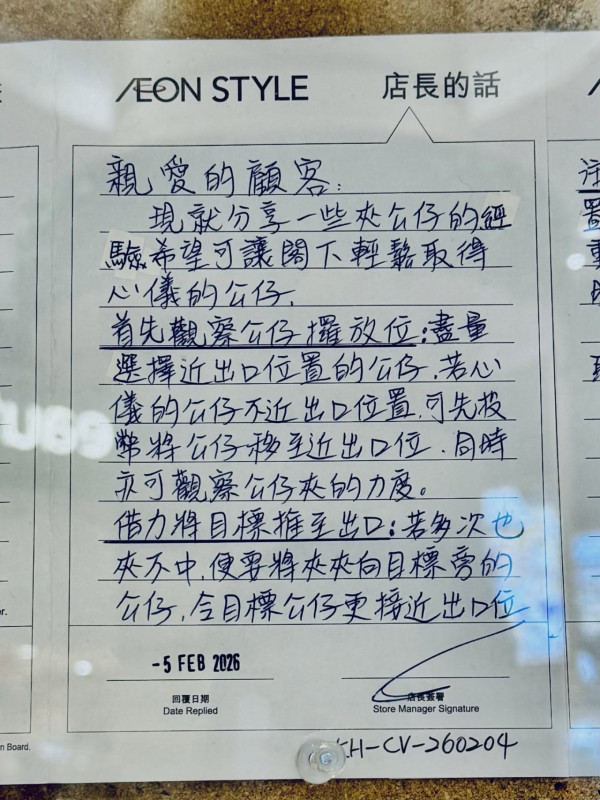 ÆON STYLE 店長的話
親愛的顧客:
現就分享一些夾公仔的經
驗,希望可讓閣下輕鬆取得
心儀的公仔.
首先觀察公仔擺放位:盡量
選擇近出口位置的公仔.若心
儀的公仔不近出口位置,可先投
幣將公仔移至近出口位.同時
亦可觀察公仔夾的力度。
借力將目標推至出口:若多次也
夾不中,便要將夾夾向目標旁的
公仔,令目標公仔更接近出口位
-5 FEB 2026
回覆日期
Date Replied
店長簽署
Store Manager Signature
KH-CV-260204
n Board.
er.
注
置